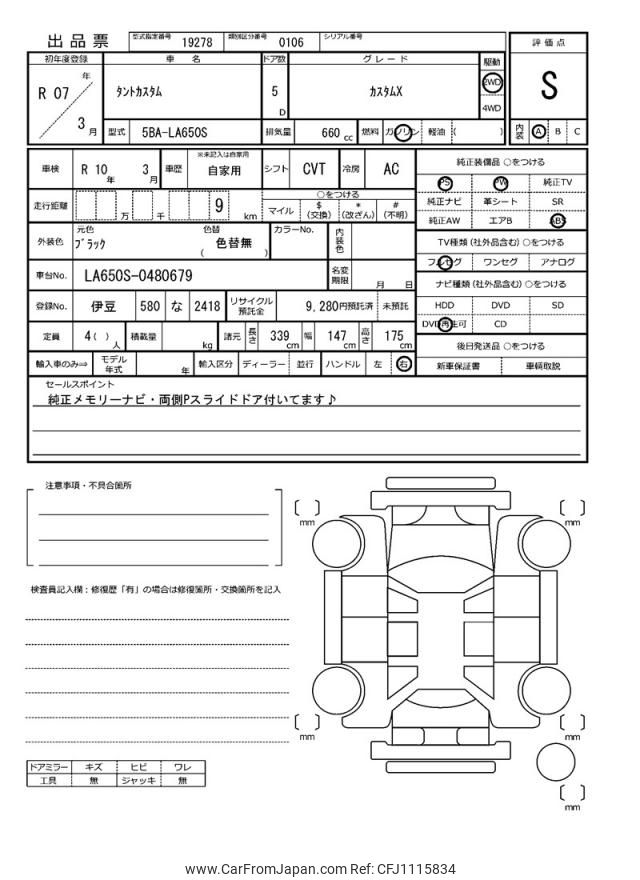 出品票 型式指定番号 19278 類別区分番号 0106 シリアル番号
評価点
S
内装 A B C
初年度登録 車名 ドア数 グレード 駆動
R 07 年 3 月
タントカスタム 5 D カスタムX 2WD 4WD
型式 5BA-LA650S 排気量 660 cc 燃料 ガソリン 軽油 ( )
車検 R 10 年 3 月 車歴 ※未記入は自家用 自家用 シフト CVT 冷房 AC
走行距離 万 千 9 km
○をつける
マイル $ (交換) * (改ざん) # (不明)
外装色 元色 ブラック 色替 ( 色替無 ) カラーNo. 内装色
車台No. LA650S-0480679 名変期限 月 日
登録No. 伊豆 580 な 2418 リサイクル預託金 9,280円預託済 未預託
定員 4( ) 人 積載量 kg 諸元 長さ 339 cm 幅 147 cm 高さ 175 cm
輸入車のみ⇒ モデル年式 年 輸入区分 ディーラー 並行 ハンドル 左 右
純正装備品 ○をつける
PS PW 純正TV
純正ナビ 革シート SR
純正AW エアB ABS
TV種類 (社外品含む) ○をつける
フルセグ ワンセグ アナログ
ナビ種類 (社外品含む) ○をつける
HDD DVD SD
DVD再生可 CD
後日発送品 ○をつける
新車保証書 車輌取説
セールスポイント
純正メモリーナビ・両側Pスライドドア付いてます♪
注意事項・不具合箇所
検査員記入欄：修復歴「有」の場合は修復箇所・交換箇所を記入
[ ] mm
[ ] mm
[ ] mm
[ ] mm
[ ] mm
ドアミラー キズ ヒビ ワレ
工具 無 ジャッキ 無
www.CarFromJapan.com Ref: CFJ1115834